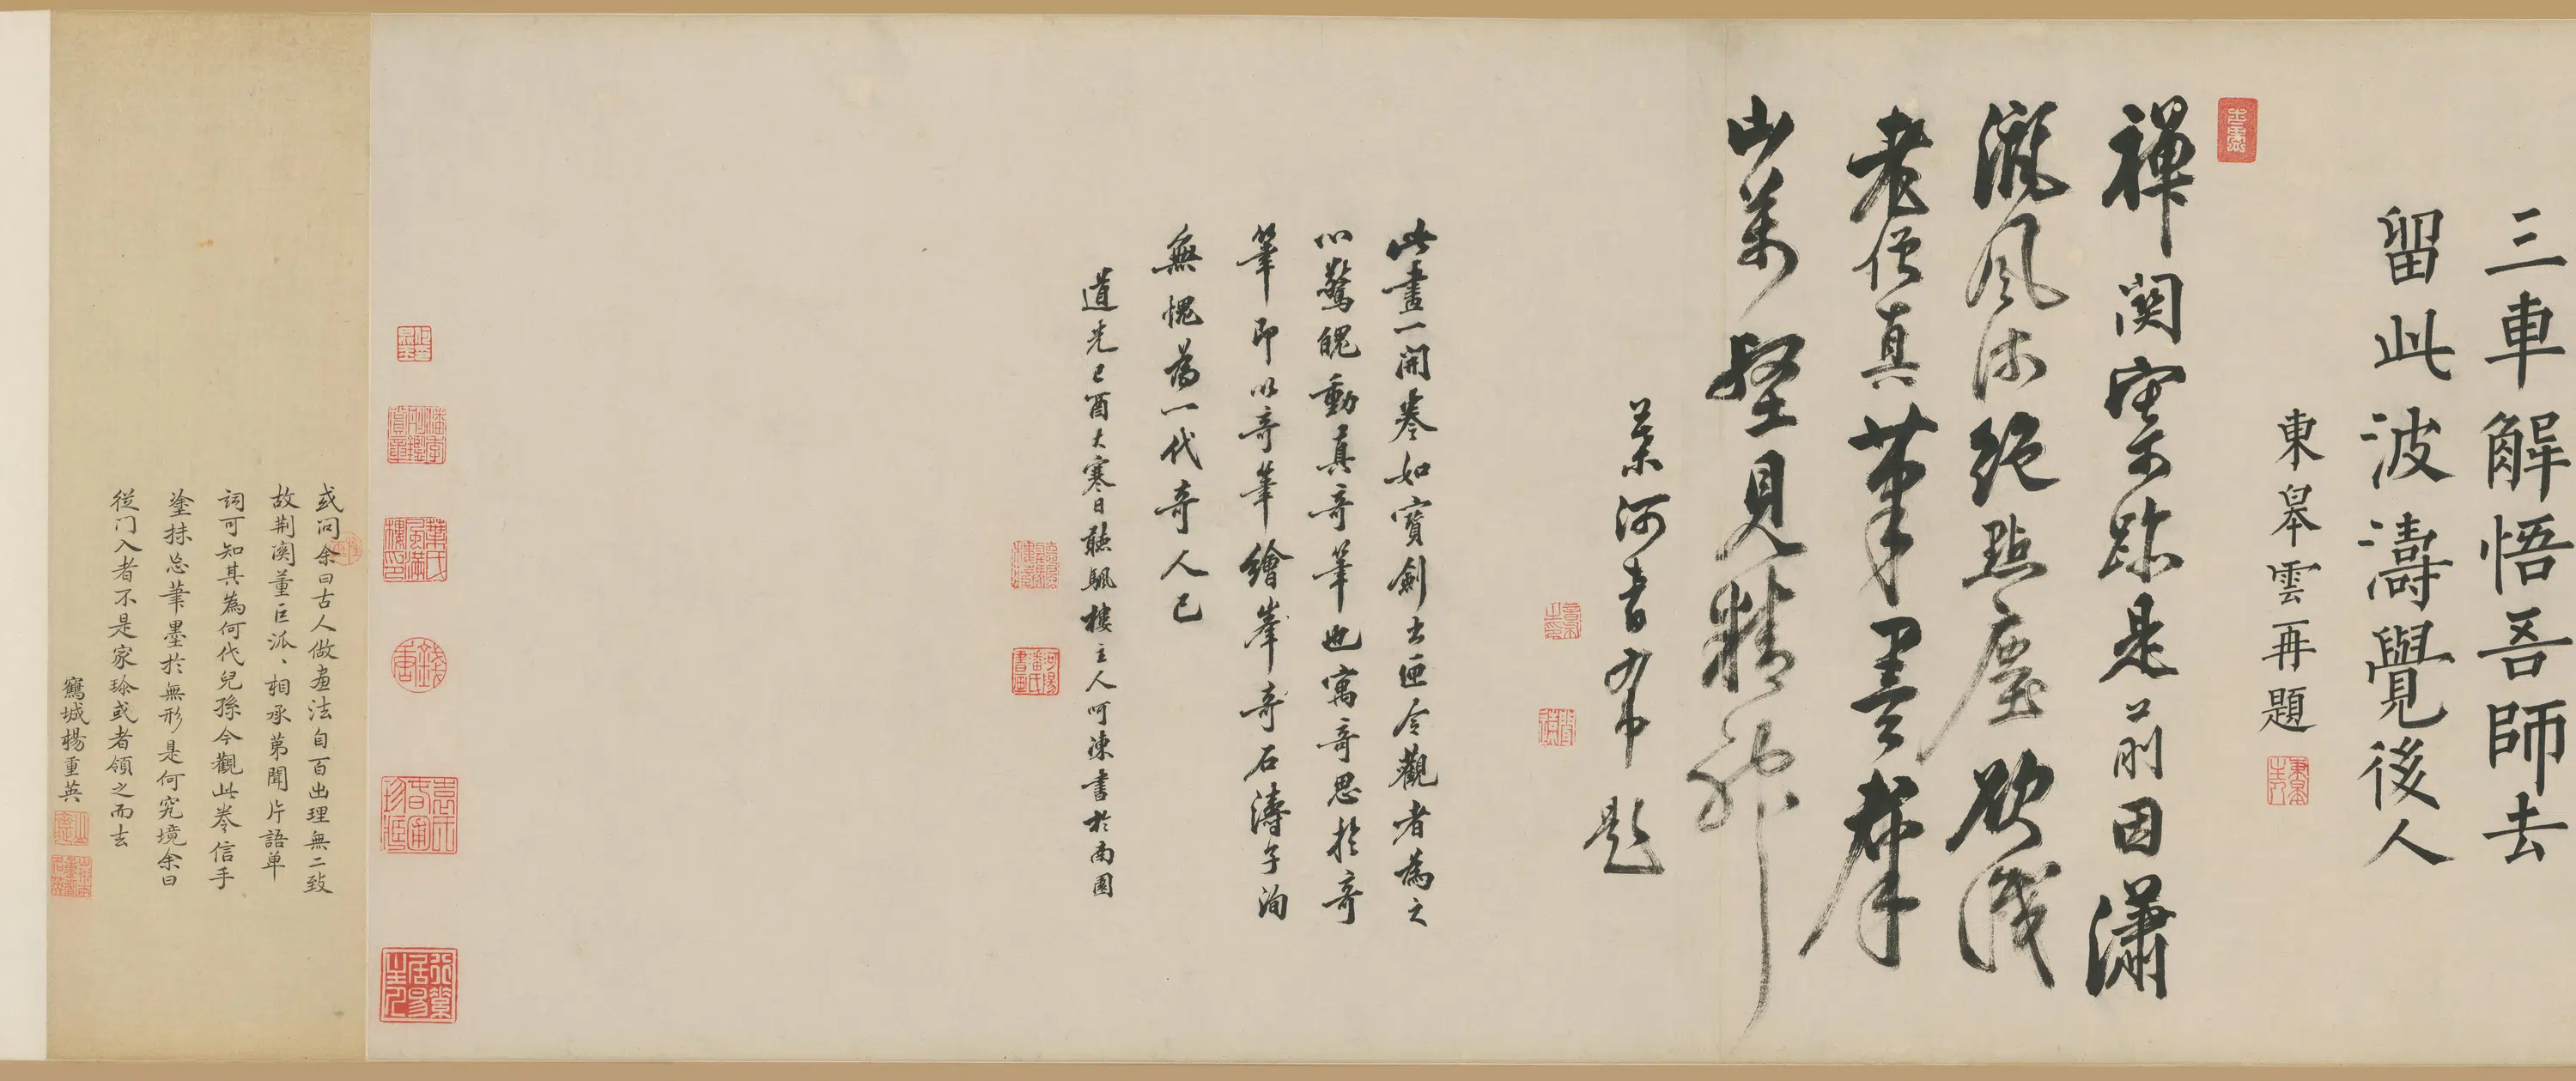 三車解悟吾師去
留此波濤覺後人
東皋雲再題
禪関寂跡是前因瀟
灑風流絕點塵欲識
老僧真筆墨群
山萬壑見精神
葉河書常題
此畫一開卷如寶劍出匣令觀者為之
心驚魄動真奇筆也寓奇思於奇
筆即以奇筆繪峯奇石濤子洵
無愧為一代奇人已
道光己酉大寒日聽颿樓主人呵凍書於南園
或問余曰古人做畫法自百出理無二致
故荆関董巨派、相承第聞片語单
詞可知其為何代兒孫今觀此卷信手
塗抹忘筆墨於無形是何究境余曰
從门入者不是家珍或者領之而去
鶱城楊重英